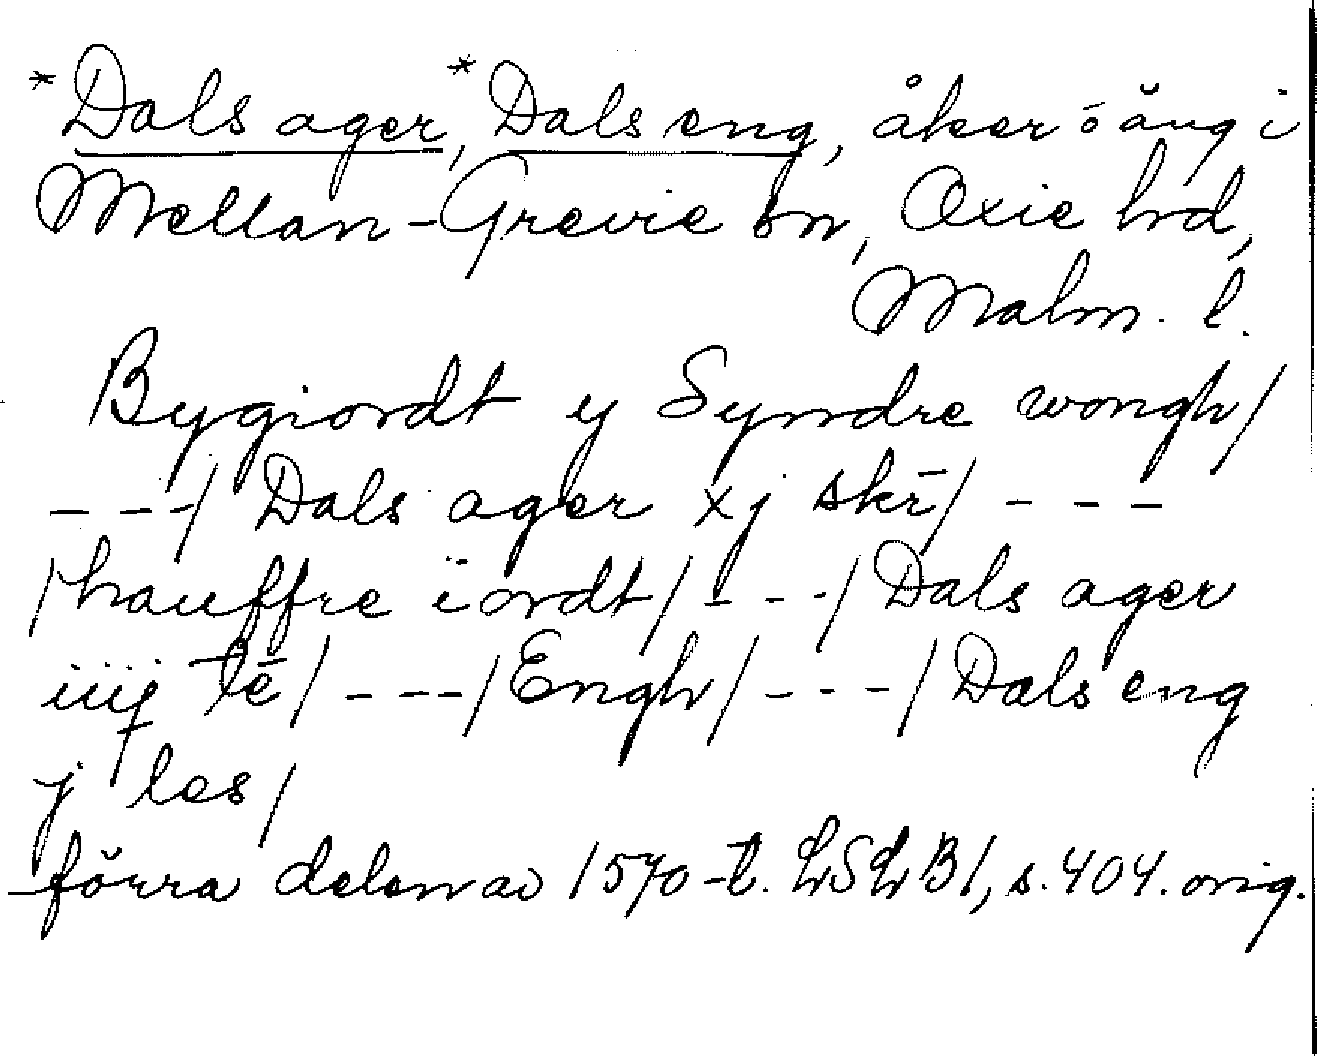 *Dals ager, *Dals eng, åker o äng i
Mellan-Grevie sn, Oxie hd,
Malm. l.
Bygiordt y Syndre wongh/
---/ Dals ager xj skr̄/ ---
/hauffre iordt/ ---/ Dals ager
iiij tē/ ---/ Engh/ ---/ Dals eng
j les/
förra delen av 1570-t. LSLB1, s. 404. orig.